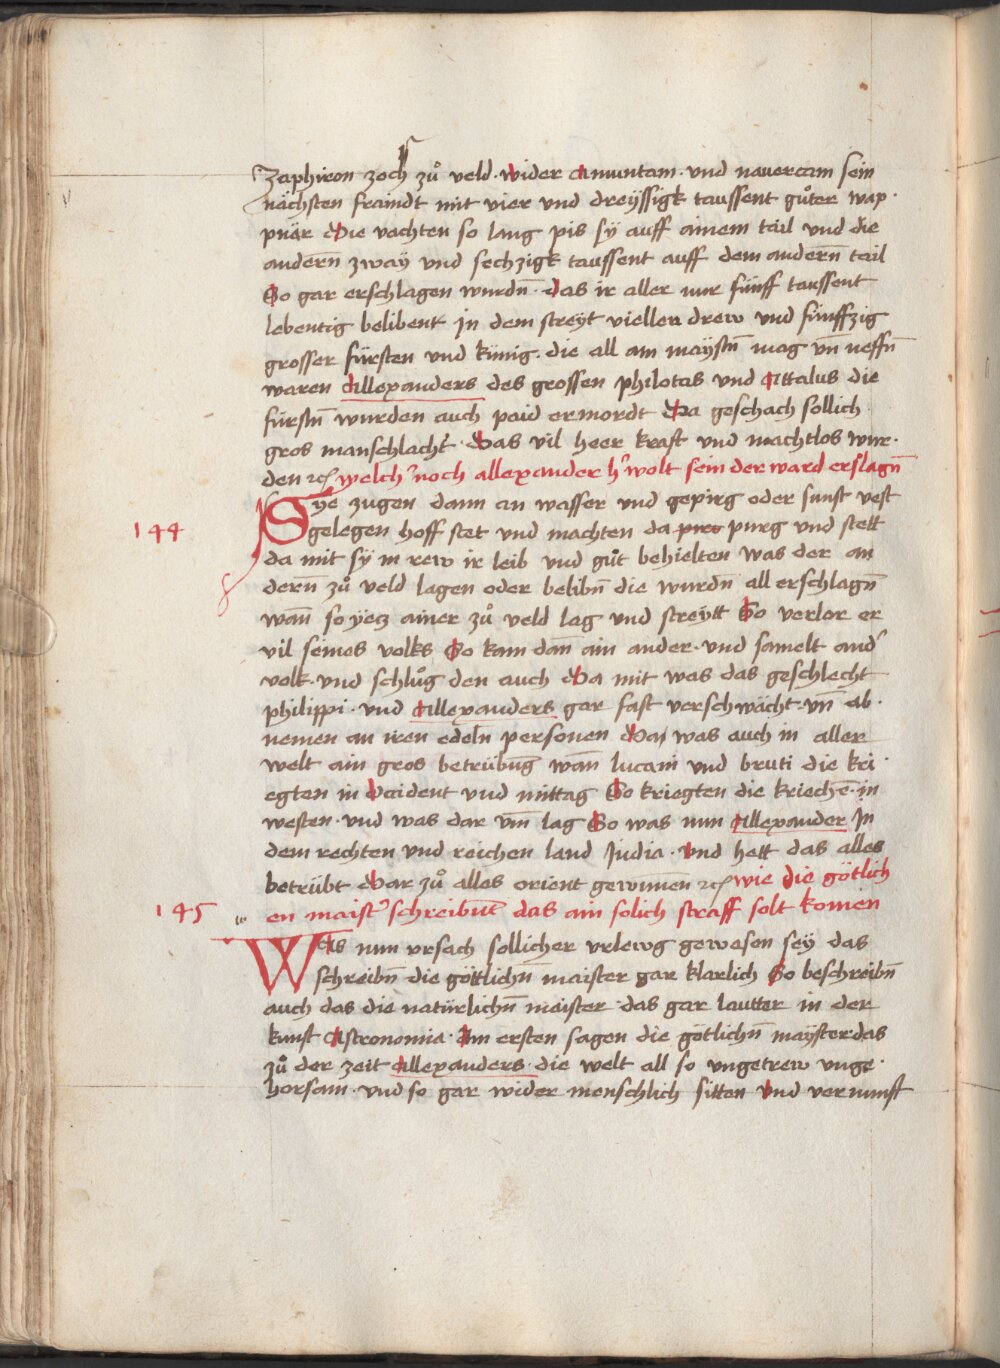 Zaphiron zoch zů veld · wider Amuntam · und nauercam sein
nächsten fraindt mit vier und dreÿssigk taussent gůter wap ·
pnär Die vachten so lang pis sÿ auff ainem tail und die
anderñ zwaÿ und sechzigk taussent auff dem anderñ tail
So gar erschlagen wurdñ · das ir aller nur fünff taussent
lebentig belibent In dem streyt viellen drew und fünffzig
grosser fürsten und künig · die all am maÿstñ mag uñ neffñ
waren Allexanders des grossen philotas und Attalus die
fürstñ wurden auch paid ermordt Da geschach sollich
gros manschlacht · Das vil heer kraft und machtlos wur ·
den ⁊c̃ welch' noch allexander h' wolt sein der ward erslagñ
144 Sye zugen dann an wasser und gepirg oder sunst vest
gelegen hoff stet und machten da pirg purg und stett
da mit sÿ in rew ir leib und gůt behielten was der an
derñ zů veld lagen oder belibñ die wurdñ all erschlagñ
wañ so yecz ainer zů veld lag und streÿtt So verlor er
vil seines volks So kam dañ ain ander · und samelt and'
volk · und schlůg den auch Da mit was das geschlecht
philippi · und Allexanders gar fast verschwächt · uñ ab ·
nemen an iren edelñ personen Da was auch in aller
welt ain gros betrübnüg wañ lucani und bruti die kri ·
egten in Occident und mittag So kriegten die kriechẽ · in
westen · und was dar vm̃ lag So was nun Allexander In
dem rechten und reichen land India · und hett das alles
betrübt Dar zů alles orient gewinnen ⁊c̃ wie die götlich
145 en maist' schreibñt das ain solich straff solt komen
Was nun ursach sollicher urlewg gewesen seÿ das
schreibñ die göttlichñ maister gar klarlich So beschreibñ
auch das die natürlichñ maister · das gar lautter in der
kunst Astronomia · Am ersten sagen die götlichñ maÿster · das
zů der zeit Allexanders · die welt all so ungetrew unge ·
horsam · und so gar wider menschlich sitten und vernunft